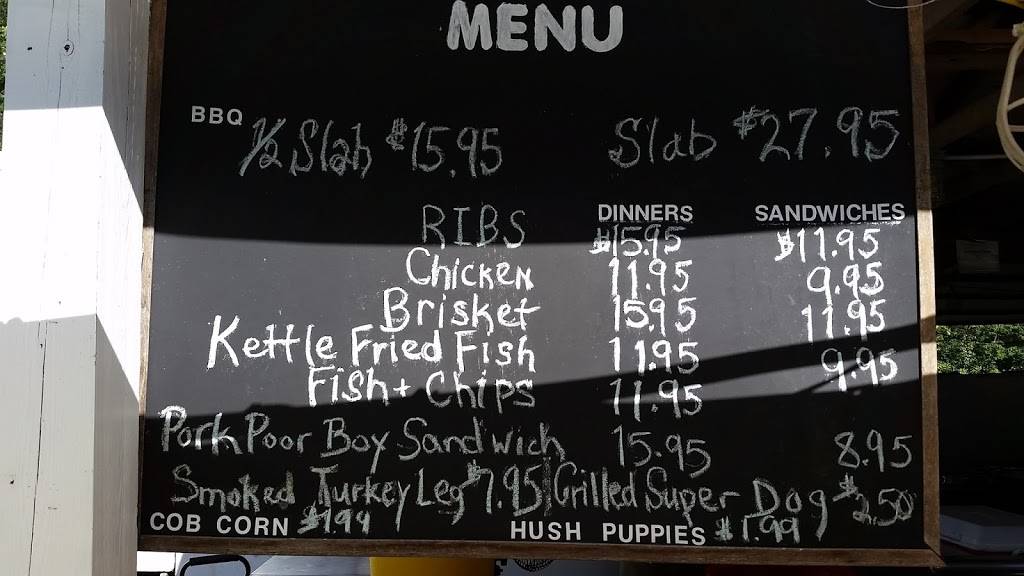 MENU
BBQ 1/2 Slab $15.95 Slab $27.95
DINNERS SANDWICHES
RIBS $15.95 $11.95
Chicken 11.95 9.95
Brisket 15.95 11.95
Kettle Fried Fish 11.95 9.95
Fish + Chips 11.95
Pork Poor Boy Sandwich 15.95 8.95
Smoked Turkey Leg $7.95 | Grilled Super Dog $2.50
COB CORN $1.99 HUSH PUPPIES $1.99